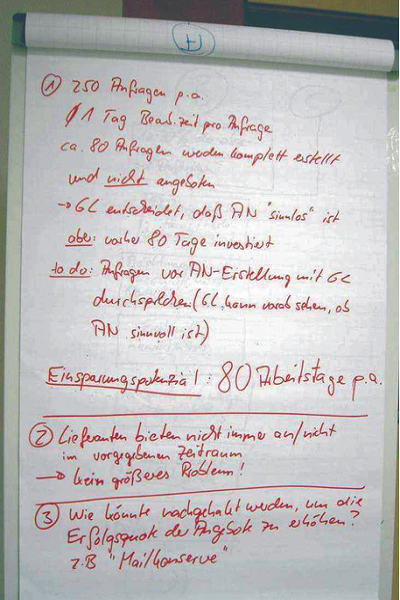 H
① 250 Anfragen p.a.
∅ 1 Tag Bearb.zeit pro Anfrage
ca. 80 Anfragen werden komplett erstellt
und nicht angeboten
→ GL entscheidet, daß AN "sinnlos" ist
aber: vorher 80 Tage investiert
to do: Anfragen vor AN-Erstellung mit GL
durchsprechen (GL kann vorab sehen, ob
AN sinnvoll ist)
Einsparungspotenzial: 80 Arbeitstage p.a.
② Lieferanten bieten nicht immer an/nicht
im vorgegebenen Zeitraum
→ kein größeres Problem!
③ Wie könnte nachgehakt werden, um die
Erfolgsquote der Angebote zu erhöhen?
z.B "Mailkonserve"